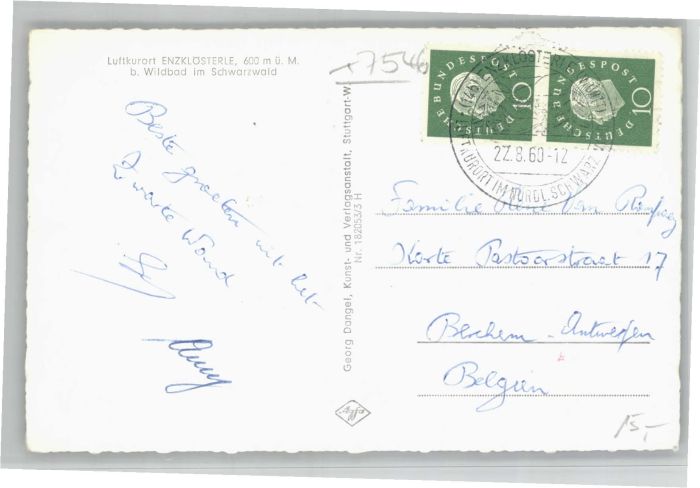 Luftkurort ENZKLÖSTERLE, 600 m ü. M.
b. Wildbad im Schwarzwald
7546
Beste groeten uit het
Zwarte Woud
Georg Dangel, Kunst- und Verlagsanstalt, Stuttgart-W
Nr. 182053/3 H
Agfa
DEUTSCHE BUNDESPOST
10
DEUTSCHE BUNDESPOST
10
ENZKLÖSTERLE
22.8.60-12
LUFTKURORT IM NÖRDL. SCHWARZW
Familie Van
Korte Pastoorstraat 17
Berchem - Antwerpen
Belgien
15,-